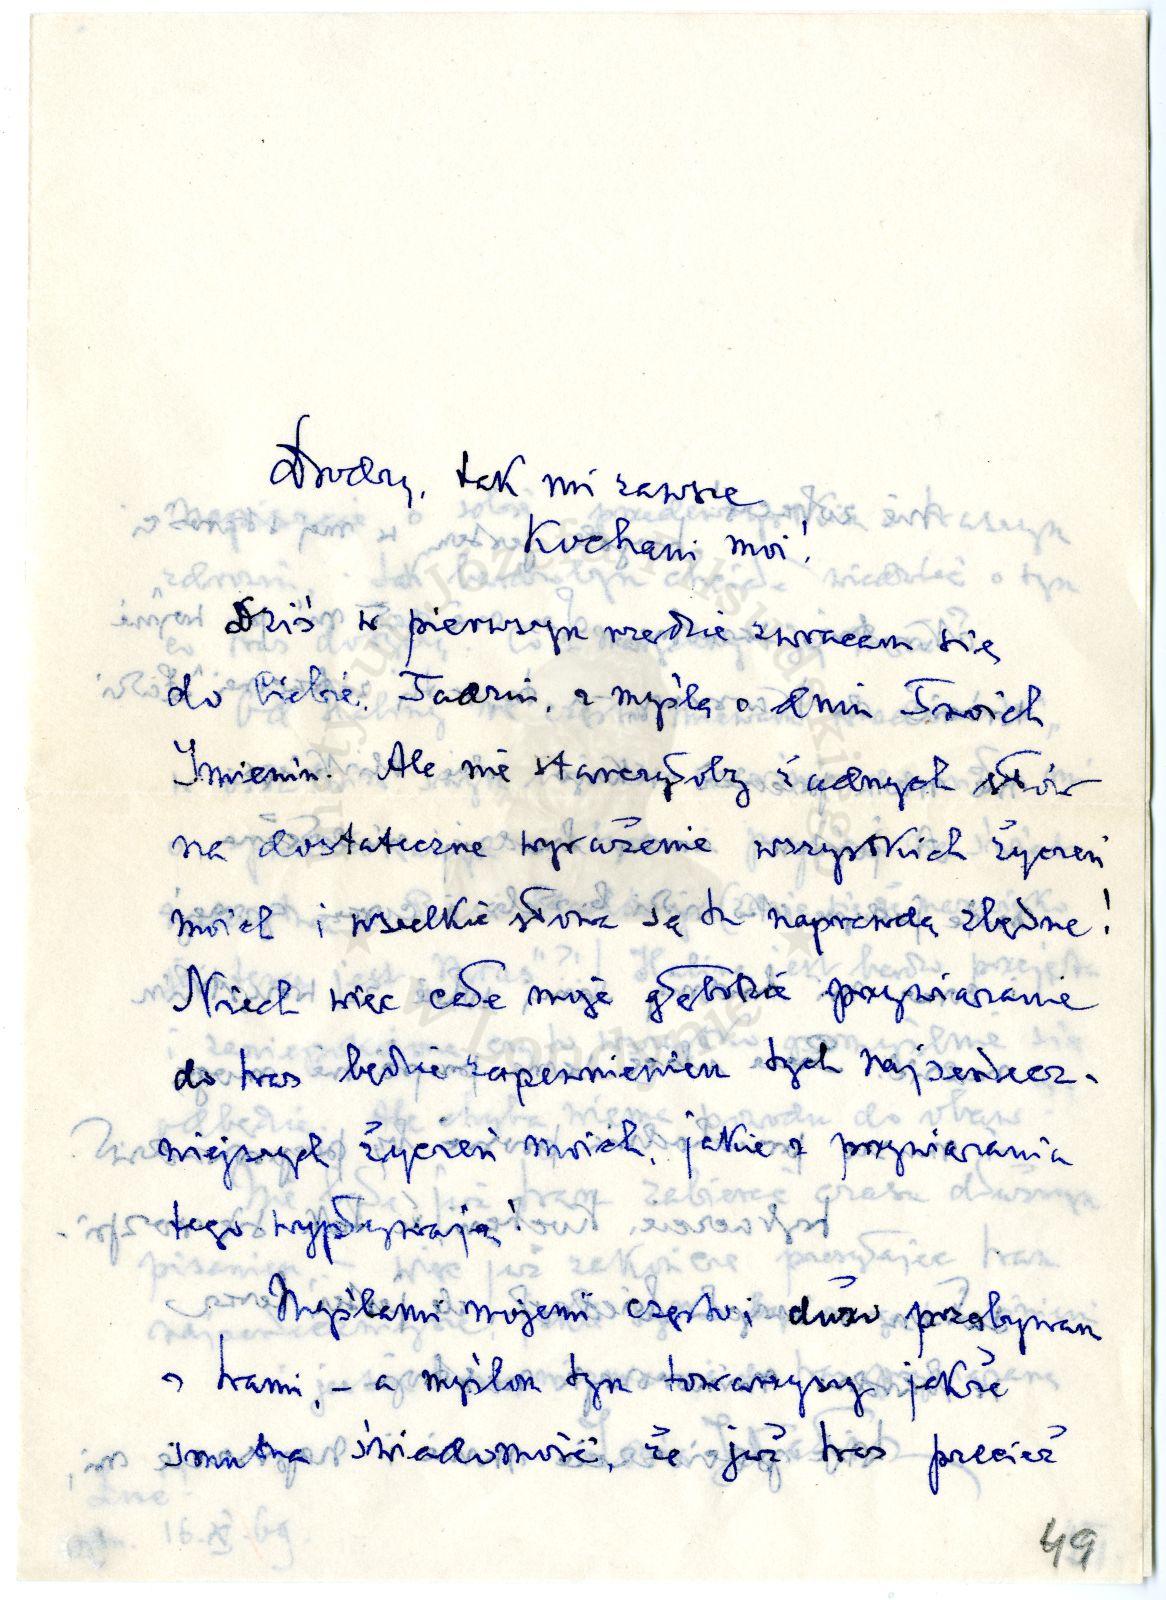 Drodzy, tak mi zawsze
Kochani moi!
Dziś w pierwszym rzędzie zwracam się
do Ciebie, Tadziu, z myślą o dniu Twoich
Imienin. Ale nie starczyłoby żadnych słów
na dostateczne wyrażenie wszystkich życzeń
moich i wszelkie słowa są tu naprawdę zbędne!
Niech więc całe moje głębokie przywiązanie
do Was będzie zapewnieniem tych najserdecz-
niejszych życzeń moich, jakie z przywiązania
tego wypływają!
Myślami mojemi często i dużo przebywam
z Wami, – a myślom tym towarzyszy jakże
smutna świadomość, że już Was przecież
49